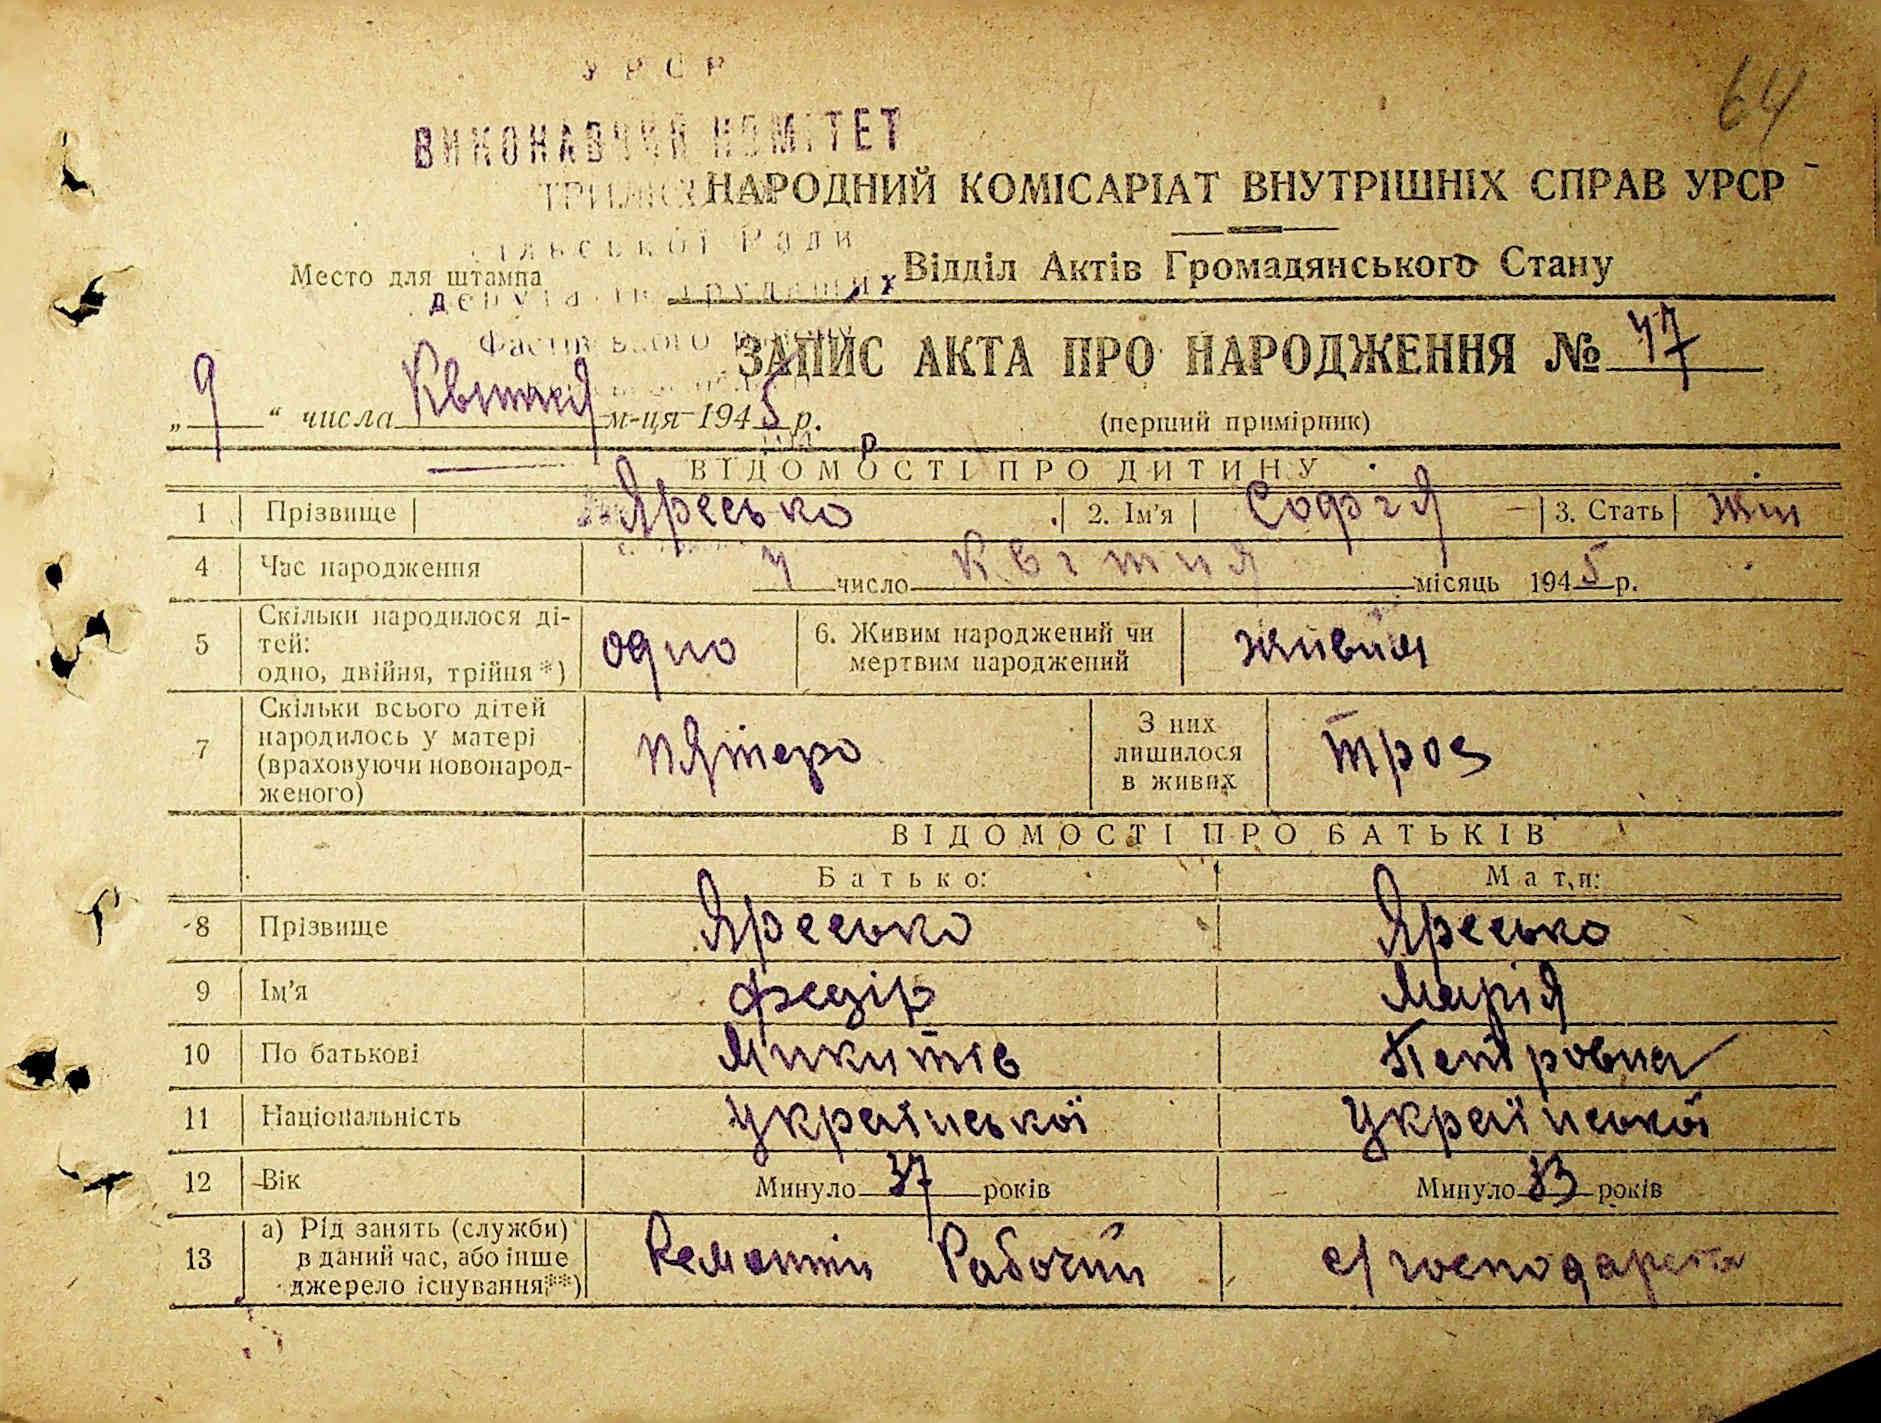 64
УРСР
ВИКОНАВЧИЙ КОМІТЕТ
НАРОДНИЙ КОМІСАРІАТ ВНУТРІШНІХ СПРАВ УРСР
сільської Ради
Відділ Актів Громадянського Стану
Место для штампа
депутатів трудящих
Фастівського району
ЗАПИС АКТА ПРО НАРОДЖЕННЯ № 47
„ 9 “ числа Квітня м-ця 1945 р.
(перший примірник)
ВІДОМОСТІ ПРО ДИТИНУ
1 Прізвище Яресько 2. Ім'я Софія 3. Стать жін
4 Час народження 4 число Квітня місяць 1945 р.
5 Скільки народилося ді-
тей:
одно, двійня, трійня *) одно 6. Живим народжений чи
мертвим народжений живим
7 Скільки всього дітей
народилось у матері
(враховуючи новонарод-
женого) пятеро З них
лишилося
в живих троє
ВІДОМОСТІ ПРО БАТЬКІВ
Батько: Мати:
8 Прізвище Яресько Яресько
9 Ім'я Федір Марія
10 По батькові Микитів Петровна
11 Національність Української Української
12 Вік Минуло 37 років Минуло 33 років
13 а) Рід занять (служби)
в даний час, або інше
джерело існування**) Рабочий с/господарства